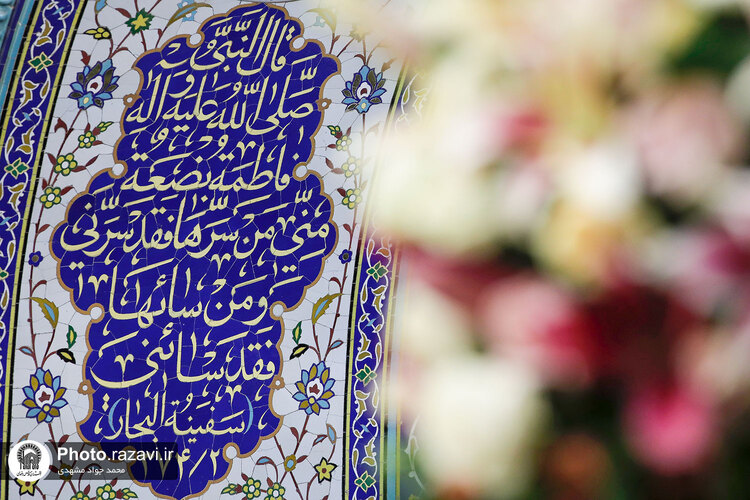 قَالَ النَّبِيُّ
صَلَّی اللّٰهُ عَلَیْهِ وَآلِهِ
فَاطِمَةُ بَضْعَةٌ
مِنّی مَنْ سَرَّهَا فَقَدْ سَرَّنی
وَمَنْ سَائَهَا
فَقَدْ سَائَنی
(سَفینَةُ البِحَار)
Photo.razavi.ir
محمد جواد مشهدی